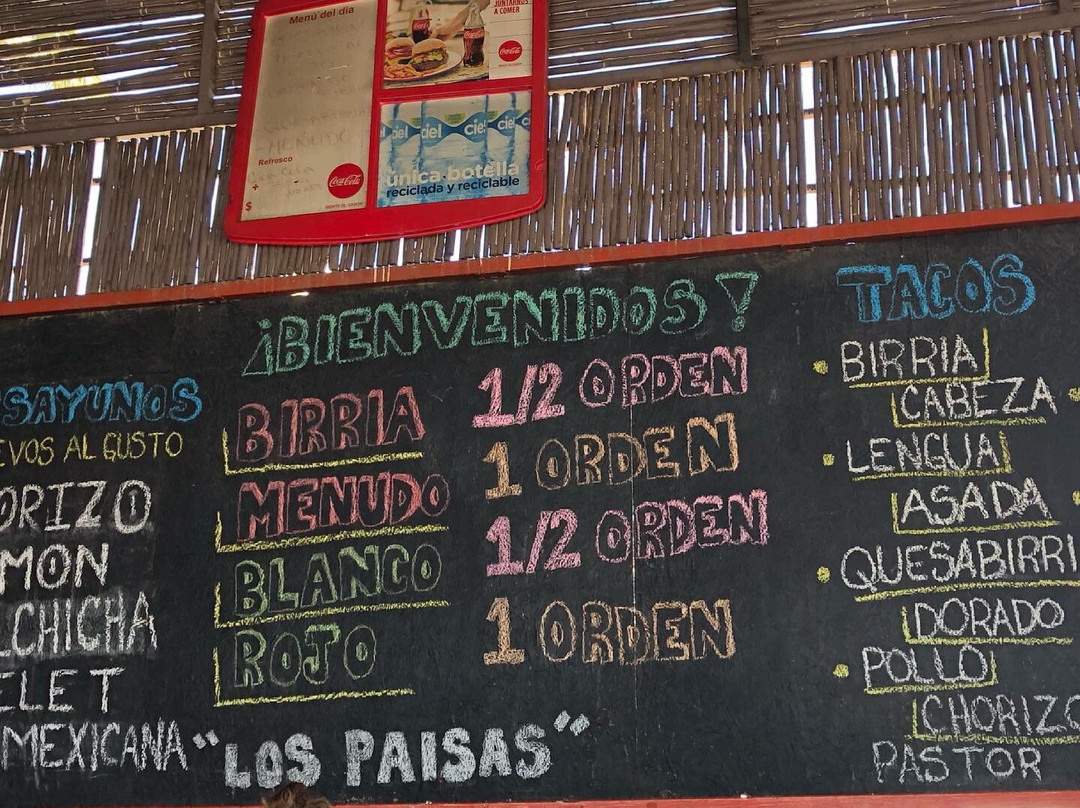 Menú del día
JUNTARNOS
A COMER
Coca-Cola
ciel ciel ciel
única botella
reciclada y reciclable
MENUDO
Refresco
+
$
Coca-Cola
¡BIENVENIDOS!
SAYUNOS
EVOS AL GUSTO
ORIZO
MON
LCHICHA
ELET
MEXICANA
BIRRIA
MENUDO
BLANCO
ROJO
1/2 ORDEN
1 ORDEN
1/2 ORDEN
1 ORDEN
"LOS PAISAS"
TACOS
BIRRIA
CABEZA
LENGUA
ASADA
QUESABIRRI
DORADO
POLLO
CHORIZO
PASTOR